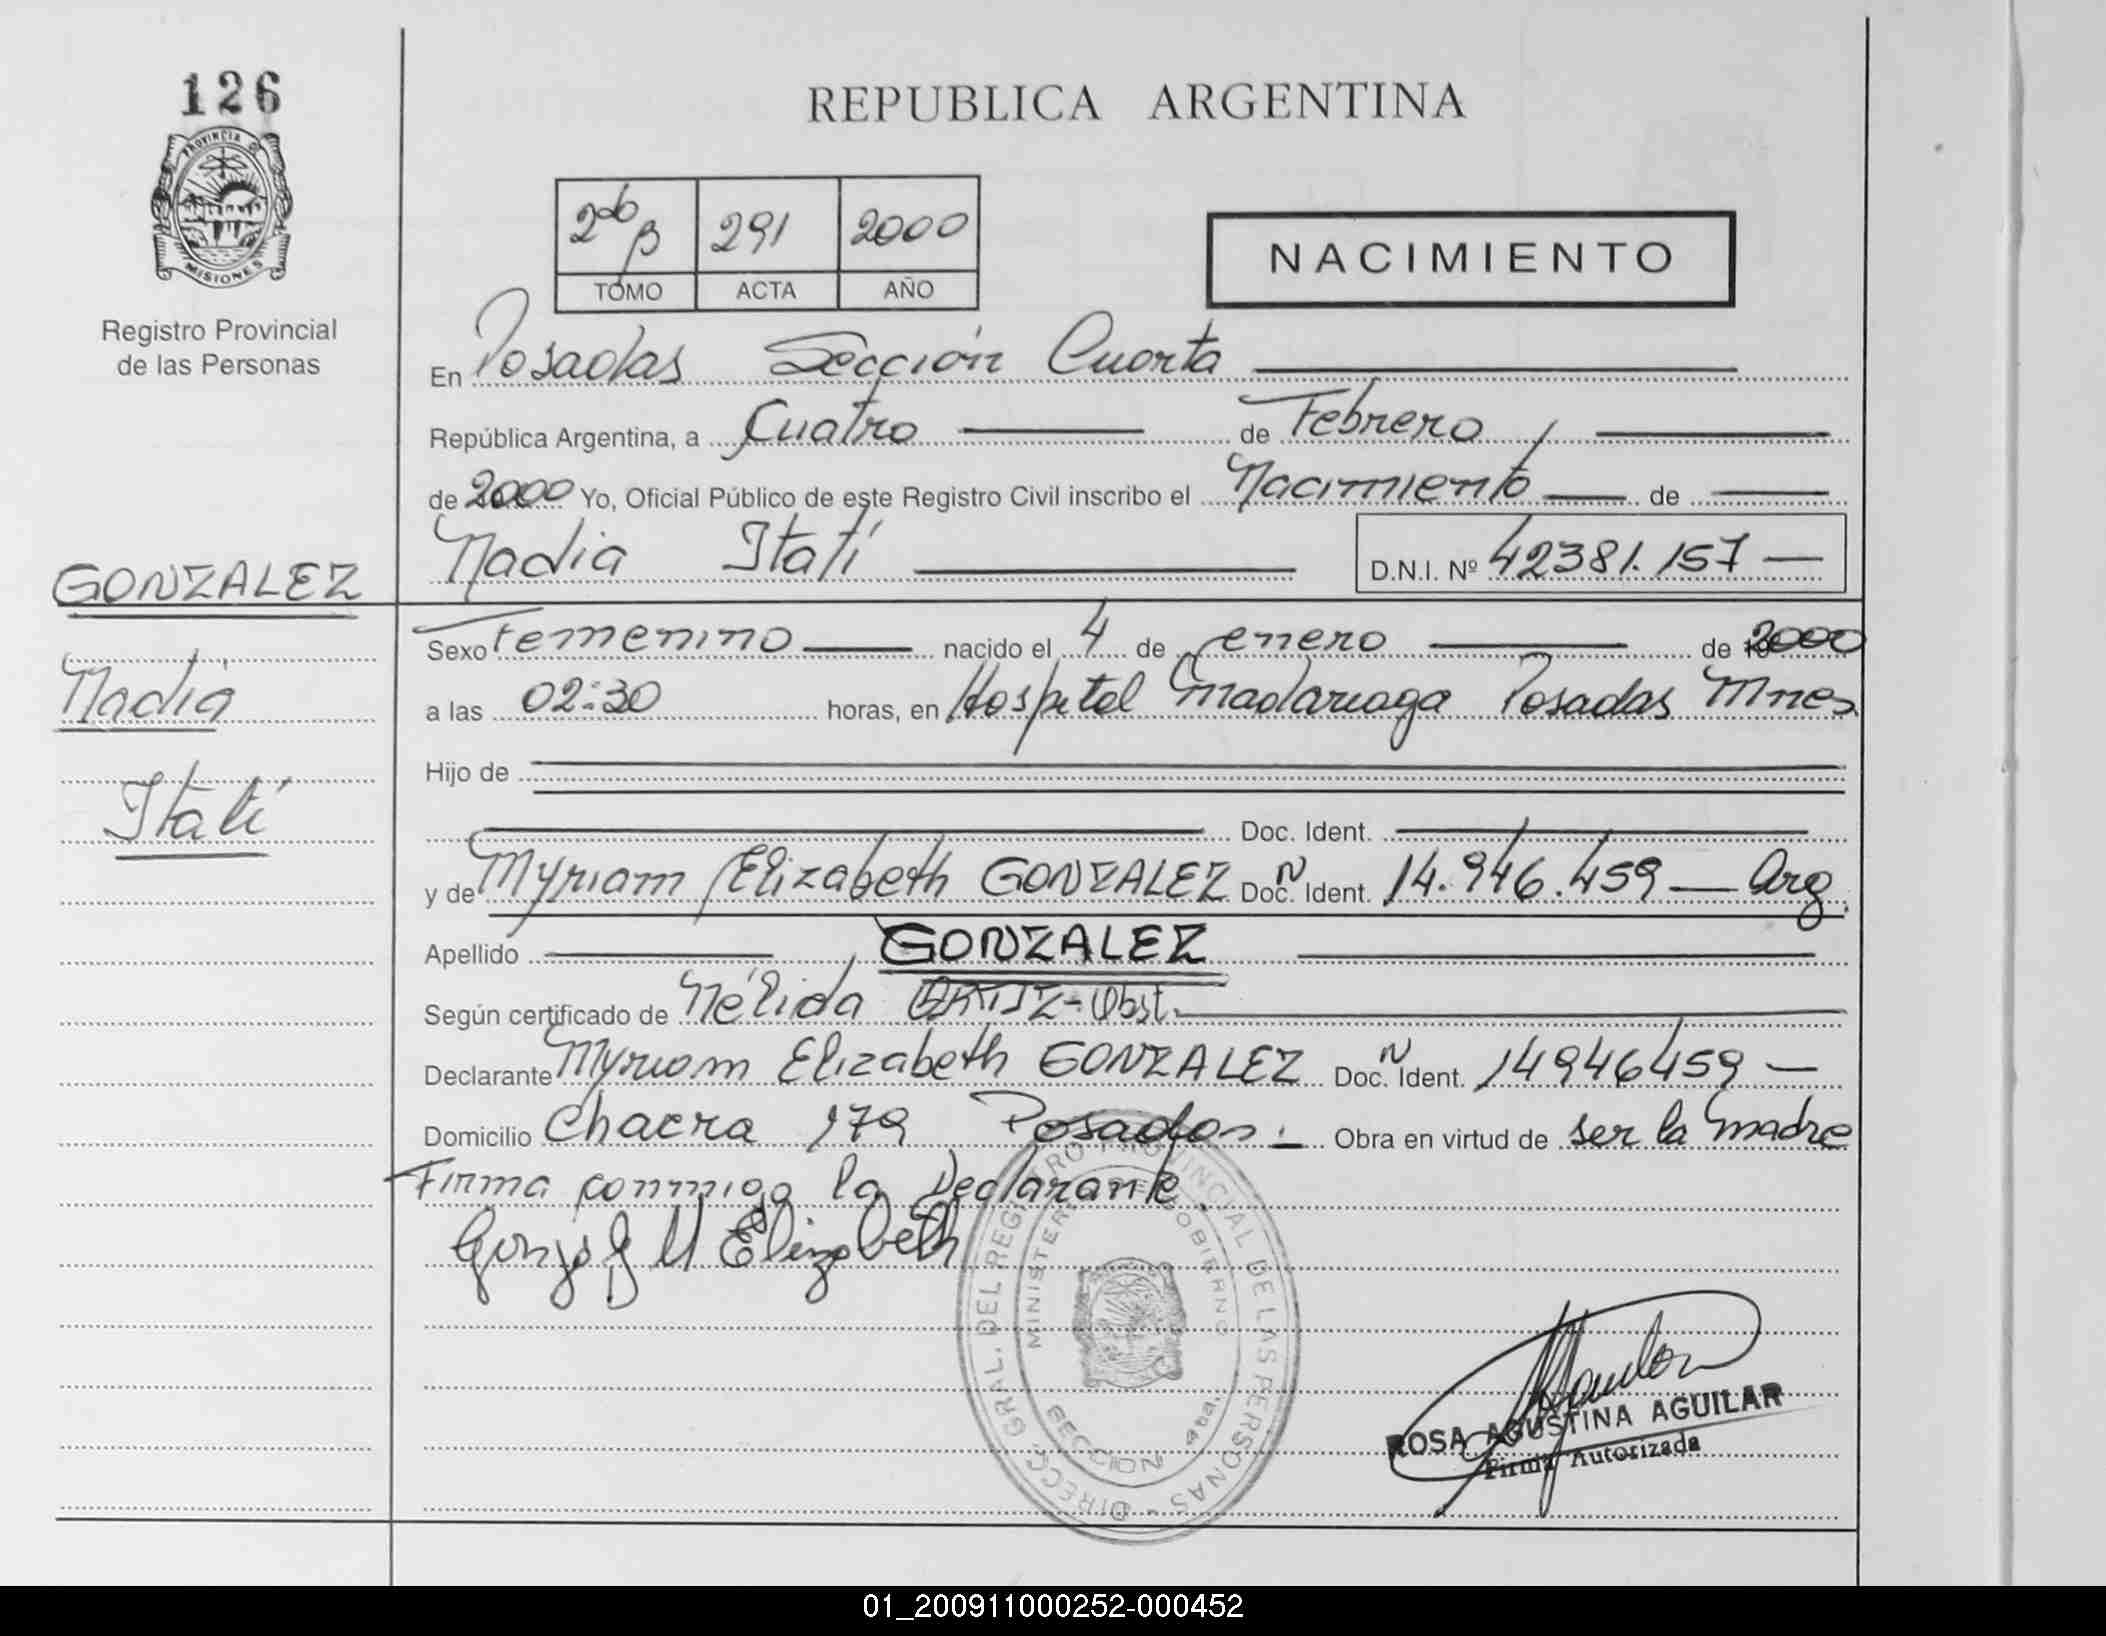 126
PROVINCIA DE
MISIONES
Registro Provincial
de las Personas
REPUBLICA ARGENTINA
291 2000
TOMO ACTA AÑO
NACIMIENTO
En Posadas Sección Cuarta
República Argentina, a Cuatro de Febrero
de 2000 Yo, Oficial Público de este Registro Civil inscribo el Nacimiento de
Nadia Itatí D.N.I. Nº 42381.157
GONZALEZ
Nadia
Itatí
Sexo Femenino nacido el 4 de enero de 2000
a las 02:30 horas, en Hospital Madariaga Posadas Mnes
Hijo de
Doc. Ident.
y de Myriam Elizabeth GONZALEZ Doc. N Ident. 14.946.459 Arg.
Apellido GONZALEZ
Según certificado de Nélida ORTIZ-Obst.
Declarante Myriam Elizabeth GONZALEZ Doc. N Ident. 14946459
Domicilio Chacra 179 Posadas. Obra en virtud de ser la madre
Firma conmigo la Declarante
M Elizabeth
DIRECC. GRAL. DEL REGISTRO PROVINCIAL DE LAS PERSONAS
MINISTERIO DE GOBIERNO
SECCION 4ta.
ROSA AGUSTINA AGUILAR
Firma Autorizada
01_200911000252-000452